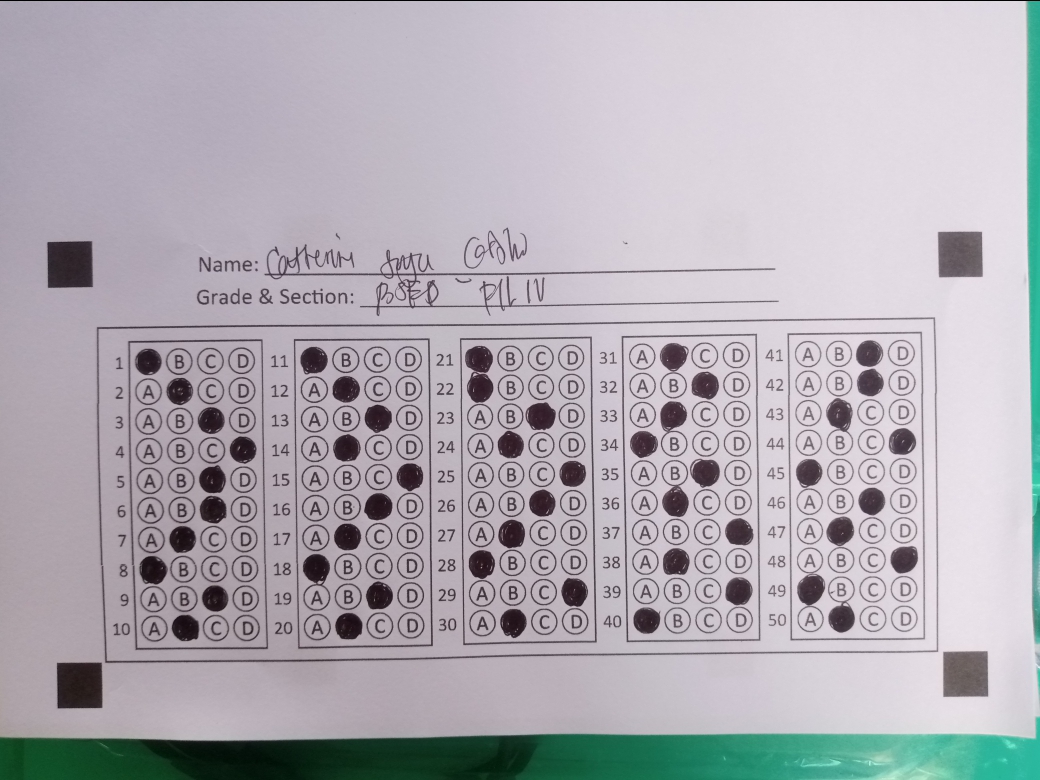 Name: Catherin
Grade & Section: BSED FIL IV
1 B C D
2 A C D
3 A B D
4 A B C
5 A B D
6 A B D
7 A C D
8 B C D
9 A B D
10 A C D
11 B C D
12 A C D
13 A B D
14 A C D
15 A B C
16 A B D
17 A C D
18 B C D
19 A B D
20 A C D
21 B C D
22 B C D
23 A B D
24 A C D
25 A B C
26 A B D
27 A C D
28 B C D
29 A B C
30 A C D
31 A C D
32 A B D
33 A C D
34 B C D
35 A B D
36 A C D
37 A B C
38 A C D
39 A B C
40 B C D
41 A B D
42 A B D
43 A C D
44 A B C
45 B C D
46 A B D
47 A C D
48 A B C
49 B C D
50 A C D